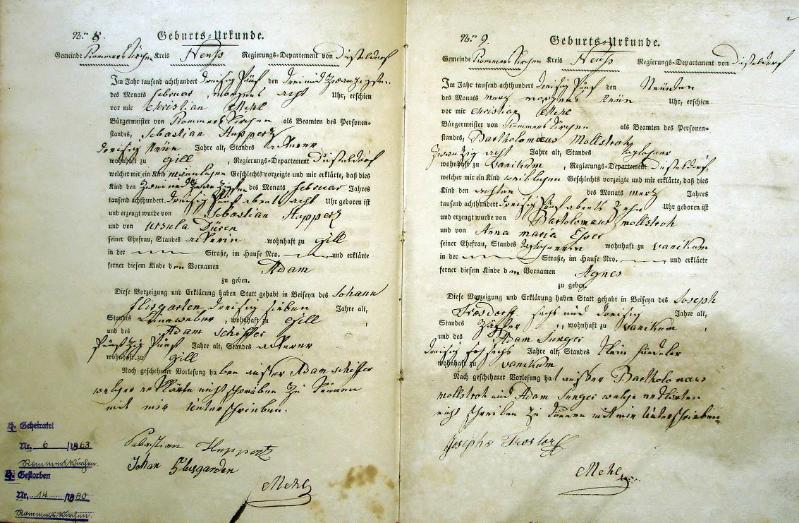 Nr. 8. Geburts-Urkunde.
Gemeinde Rommerskirchen Kreis Neuss Regierungs-Departement von Düsseldorf
Im Jahr tausend achthundert dreißig fünf den drei und zwanzigsten
des Monats Februar, morgens acht Uhr, erschien
vor mir Christian Mehl
Bürgermeister von Rommerskirchen als Beamten des Personen-
standes, Sebastian Huppertz
dreißig neun Jahre alt, Standes Ackerer
wohnhaft zu Gill, Regierungs-Departement Düsseldorf
welcher mir ein Kind männlichen Geschlechts vorzeigte und mir erklärte, daß dies
Kind den zwei und zwanzigsten des Monats Februar Jahres
tausend achthundert dreißig fünf abends acht Uhr geboren ist
und erzeugt wurde von Sebastian Huppertz
und von Ursula Düren
seiner Ehefrau, Standes Ackerin wohnhaft zu Gill
in der Straße, im Hause Nro. und erklärte
ferner diesem Kinde den Vornamen Adam
zu geben.
Diese Vorzeigung und Erklärung haben Statt gehabt in Beiseyn des Johann
dreißig sieben Jahre alt,
Standes wohnhaft zu Gill
und des Adam Schiffer
fünfzig fünf Jahre alt, Standes Ackerer
wohnhaft zu Gill
Nach geschehener Vorlesung haben außer Adam Schiffer
welcher erklärte nicht schreiben zu können
mit mir unterschrieben.
Sebastian Huppertz
Johan
Mehl
Geheiratet
Nr. 6 /1863
Rommerskirchen
Gestorben
Nr. 14 /18
Rommerskirchen
Nr. 9. Geburts-Urkunde.
Gemeinde Rommerskirchen Kreis Neuss Regierungs-Departement von Düsseldorf
Im Jahr tausend achthundert dreißig fünf den Neunten
des Monats März morgens neun Uhr, erschien
vor mir Christian Mehl
Bürgermeister von Rommerskirchen als Beamten des Personen-
standes, Bartholomäus Mollstroh
zwanzig acht Jahre alt, Standes
wohnhaft zu Vanikum, Regierungs-Departement Düsseldorf
welcher mir ein Kind weiblichen Geschlechts vorzeigte und mir erklärte, daß dies
Kind den achten des Monats März Jahres
tausend achthundert dreißig fünf abends zehn Uhr geboren ist
und erzeugt wurde von Bartholomäus Mollstroh
und von Anna Maria Esser
seiner Ehefrau, Standes wohnhaft zu Vanikum
in der Straße, im Hause Nro. und erklärte
ferner diesem Kinde den Vornamen Agnes
zu geben.
Diese Vorzeigung und Erklärung haben Statt gehabt in Beiseyn des Joseph
sechs und dreißig Jahre alt,
Standes wohnhaft zu Vanikum
und des Adam
dreißig Jahre alt, Standes Kleinhändler
wohnhaft zu Vanikum
Nach geschehener Vorlesung hat außer Bartholomäus
Mollstroh und Adam welche erklärten
nicht schreiben zu können mit mir unterschrieben.
Mehl